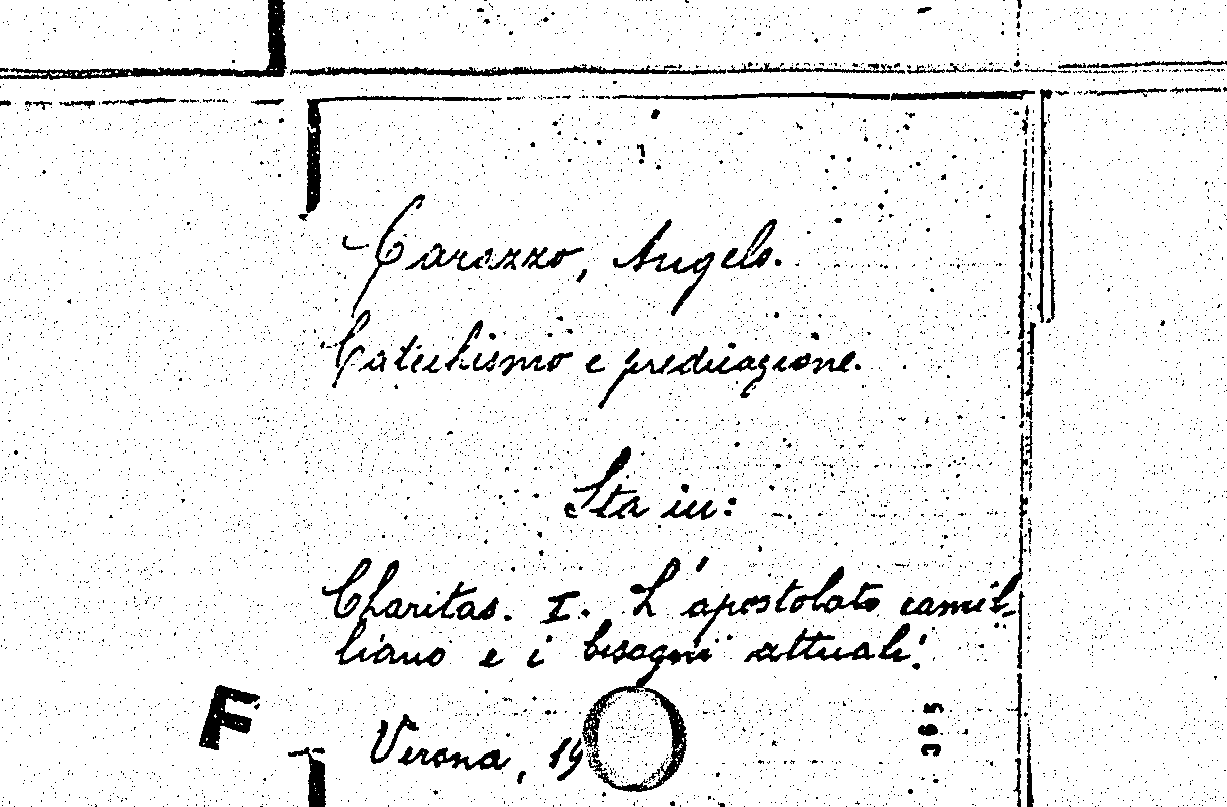 Carazzo, Angelo.
Catechismo e predicazione.
Sta in:
Charitas. I. L'apostolato camil-
liano e i bisogni attuali.
F
Verona, 19
365